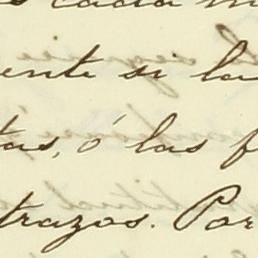 s cada m
ente si la
tas, ó las f
trazos. Por